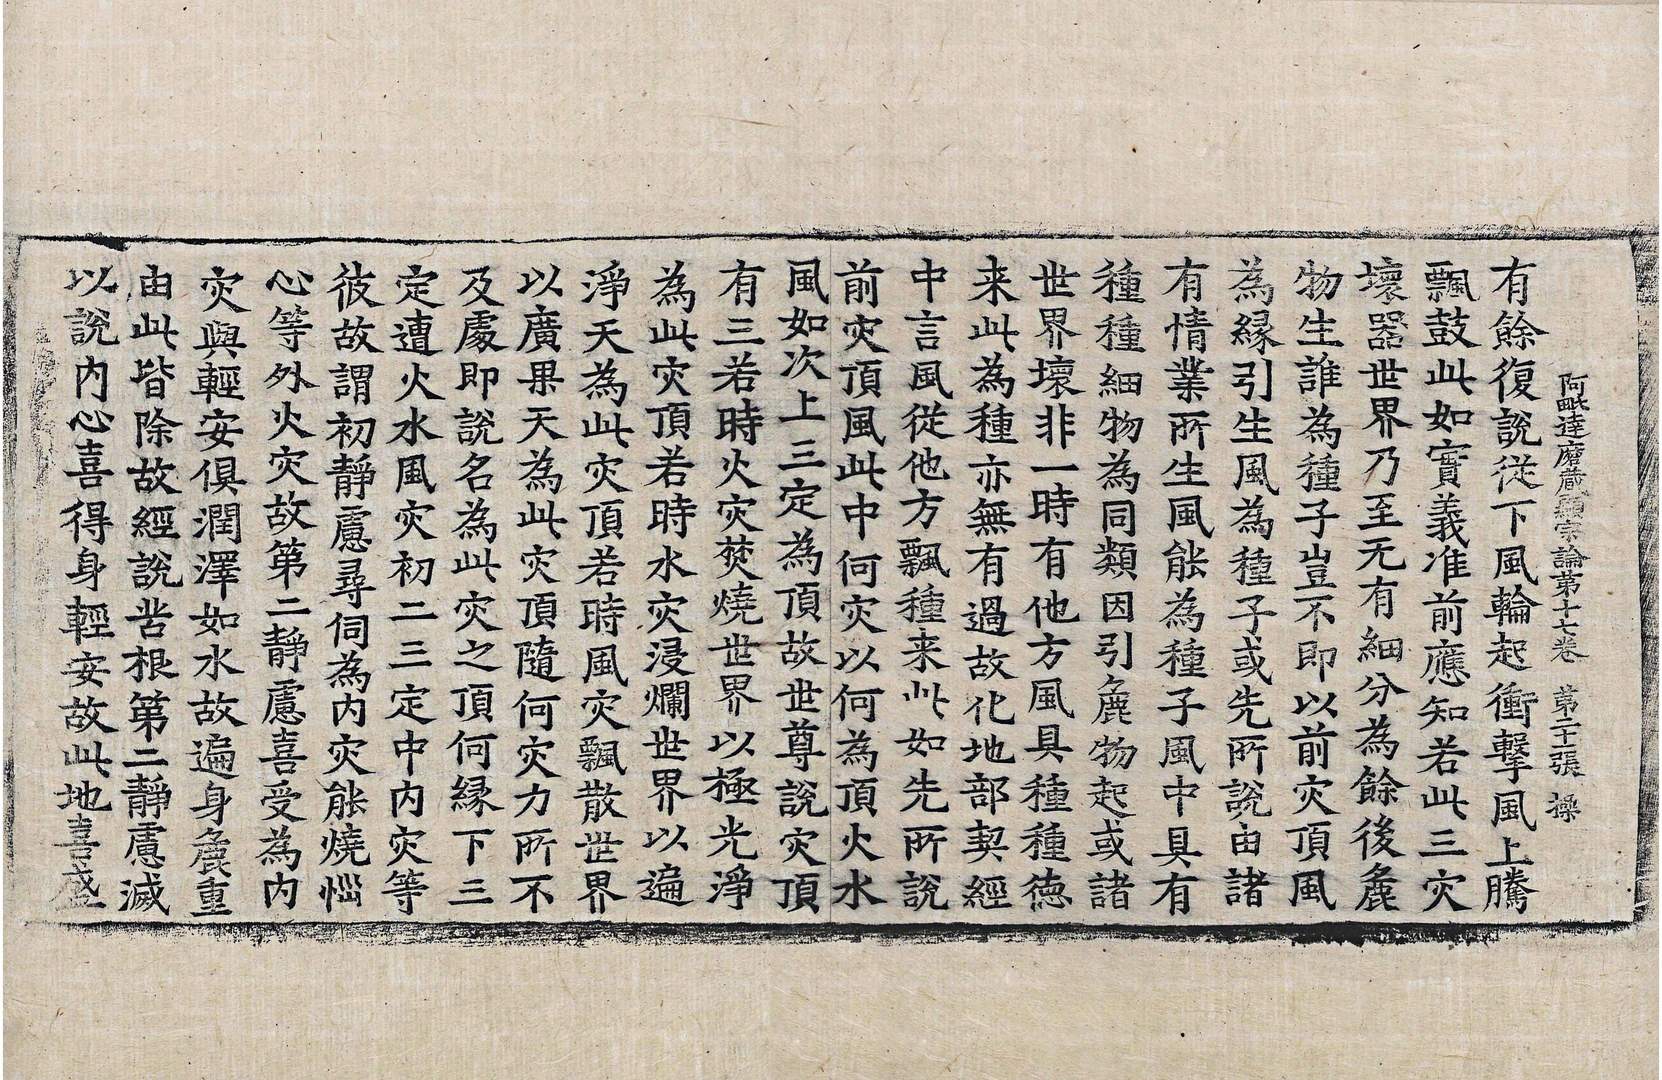 阿毗達磨藏顯宗論第十七卷　第二十張　操
有餘復說從下風輪起衝擊風上騰
飄鼓此如實義准前應知若此三灾
壞器世界乃至无有細分為餘後麁
物生誰為種子豈不即以前灾頂風
為緣引生風為種子或先所說由諸
有情業所生風能為種子風中具有
種種細物為同類因引麁物起或諸
世界壞非一時有他方風具種種德
来此為種亦無有過故化地部契經
中言風從他方飄種来此如先所說
前灾頂風此中何灾以何為頂火水
風如次上三定為頂故世尊說灾頂
有三若時火灾焚燒世界以極光淨
為此灾頂若時水灾浸爛世界以遍
淨天為此灾頂若時風灾飄散世界
以廣果天為此灾頂隨何灾力所不
及處即說名為此灾之頂何緣下三
定遭火水風灾初二三定中內灾等
彼故謂初靜慮尋伺為內灾能燒惱
心等外火灾故第二靜慮喜受為內
灾與輕安俱潤澤如水故遍身麁重
由此皆除故經說苦根第二靜慮滅
以說內心喜得身輕安故此地喜盛